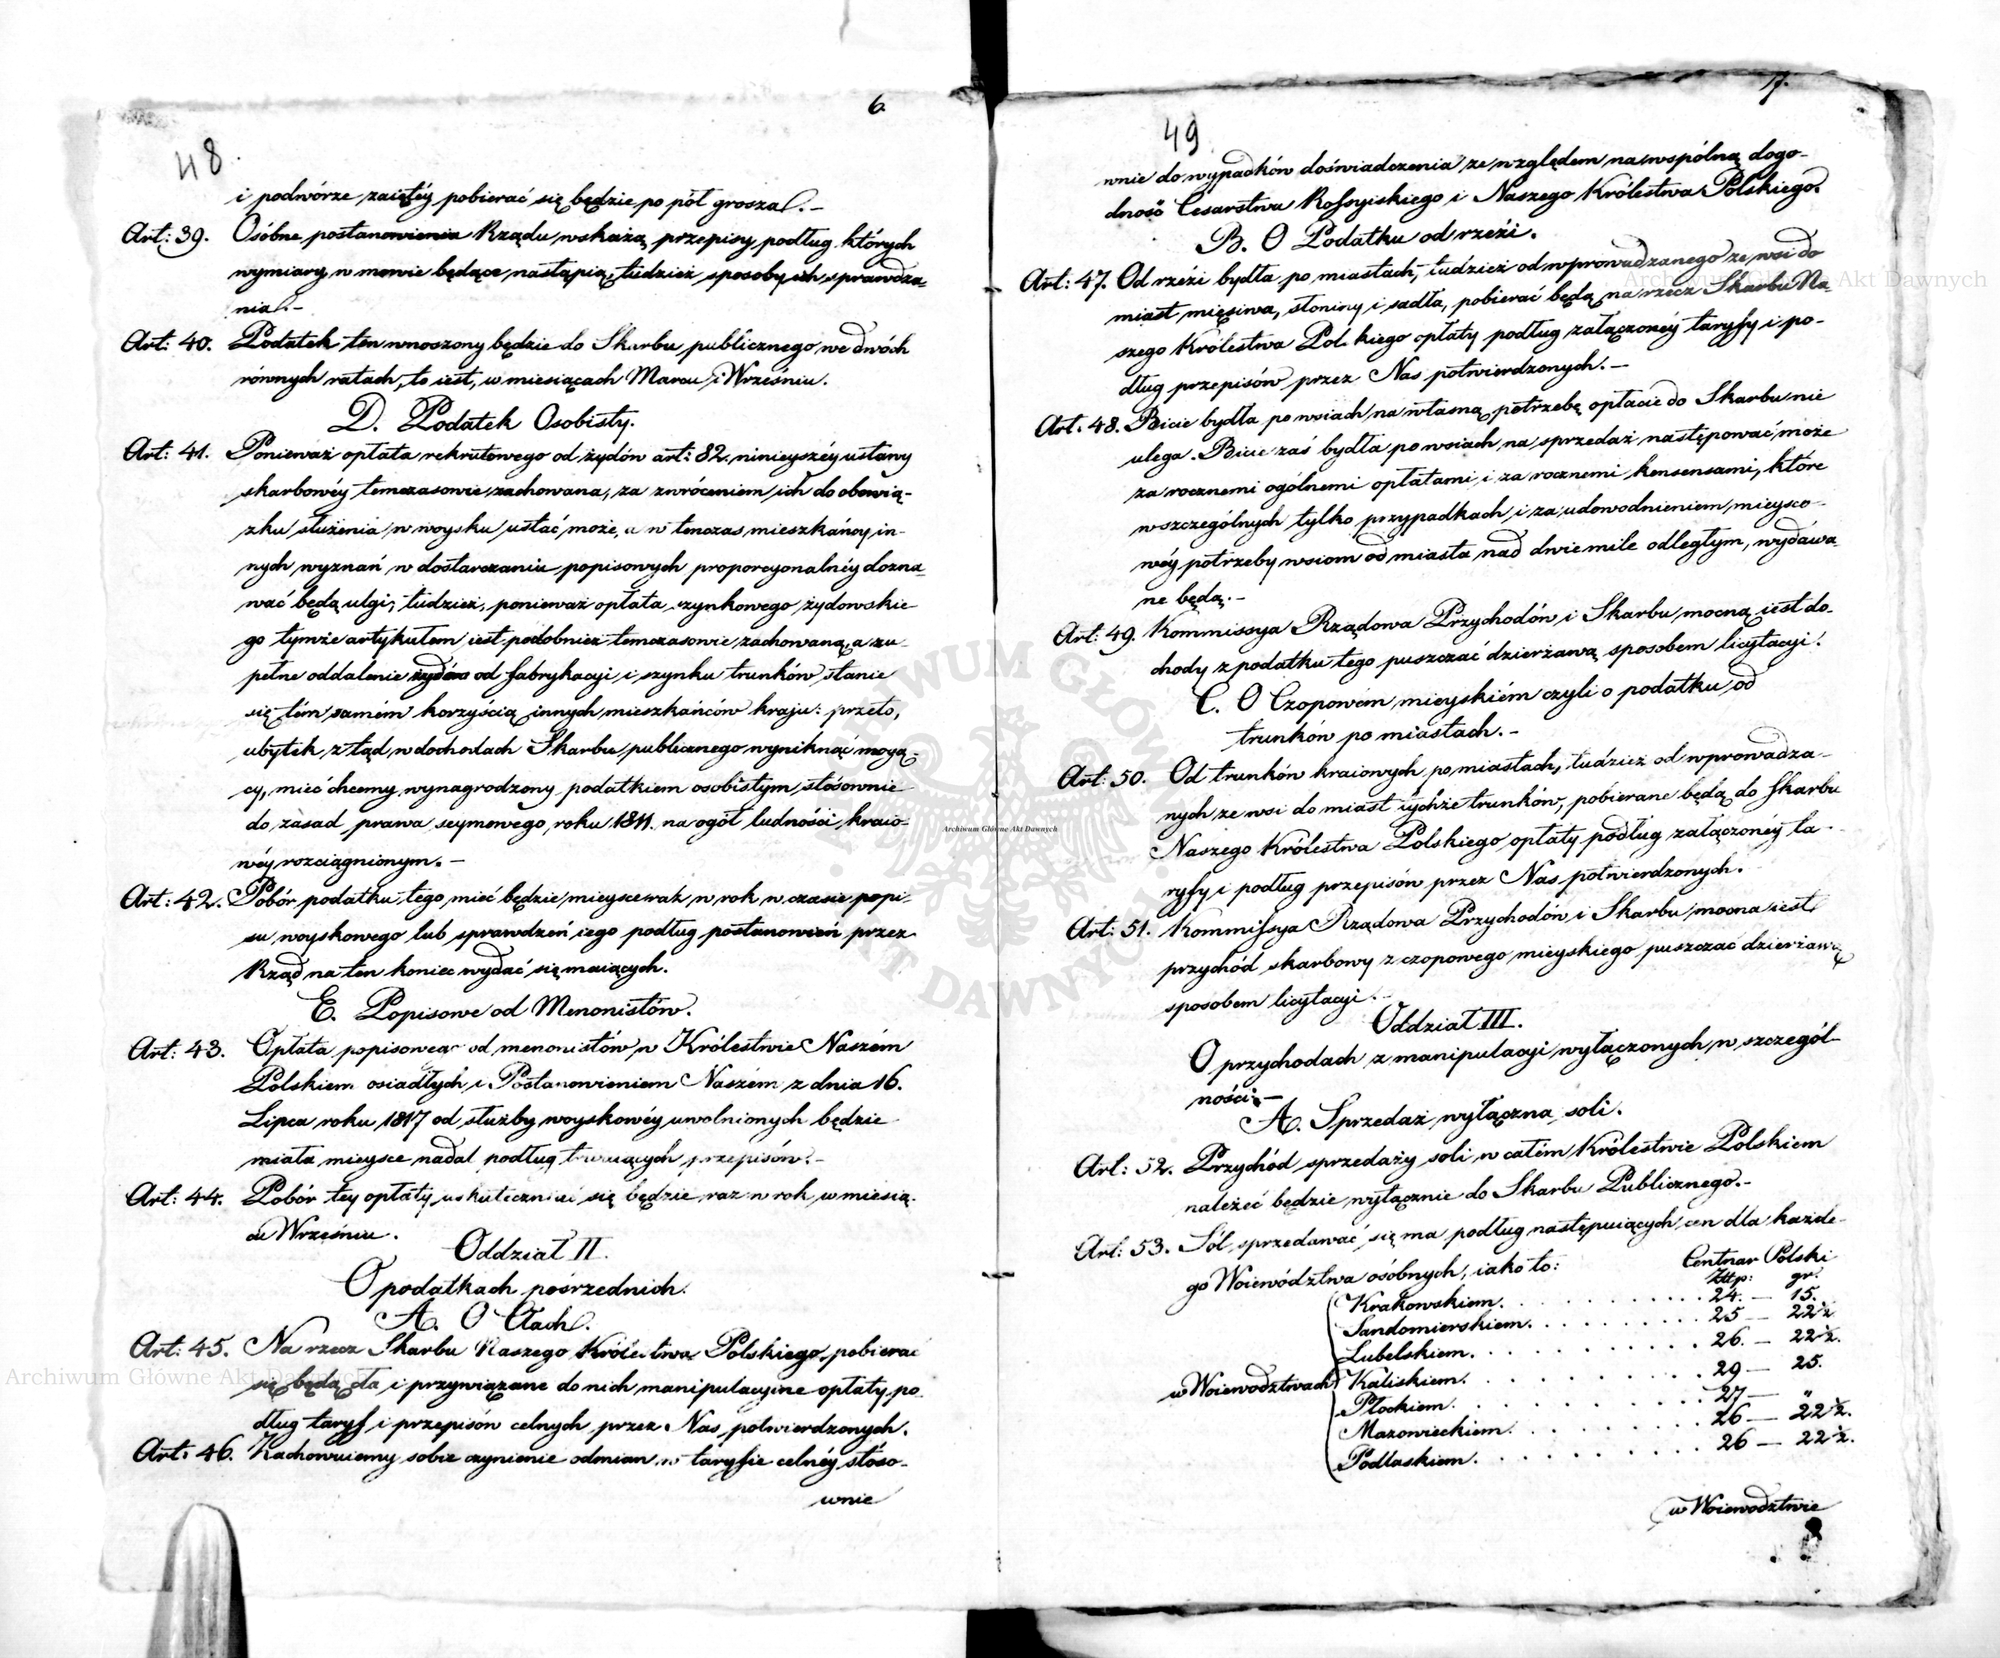 6.
48
i podwórze zaiętéy pobierać się będzie po pół grosza. —
Art: 39. Osóbne postanowienia Rządu wskażą przepisy podług których
wymiary w mowie będące nastąpią, tudzież sposoby ich sprawdza-
nia. —
Art: 40. Podatek ten wnoszony będzie do Skarbu publicznego we dwóch
równych ratach, to iest, w miesiącach Marcu i Wrześniu.
D. Podatek Osobisty.
Art: 41. Ponieważ opłata rekrutowego od żydów art: 82. ninieyszéy ustawy
skarbowéy temczasowie zachowana, za zwróceniem ich do obowią-
zku służenia w woysku ustać może, a w tenczas mieszkańcy in-
nych wyznań w dostarczaniu popisowych proporcyonalnéy dozna-
wać będą ulgi; tudzież, ponieważ opłata szynkowego żydowskie
go tymże artykułem iest podobnież temczasowie zachowaną, a zu-
pełne oddalenie żydów od fabrykacyi i szynku trunków stanie
się tém samém korzyścią innych mieszkańców kraju: przeto,
ubytek ztąd w dochodach Skarbu publicznego wyniknąć mogą-
cy, mieć chcemy wynagrodzony podatkiem osobistym stósownie
do zasad prawa seymowego roku 1811. na ogół ludności kraio-
wéy rozciągnionym. —
Art: 42. Pobór podatku tego mieć będzie mieysce raz w rok w czasie popi-
su woyskowego lub sprawdzeń iego podług postanowień przez
Rząd na ten koniec wydać się maiących.
E. Popisowe od Menonistów.
Art: 43. Opłata popisowego od menonistów w Królestwie Naszém
Polskiem osiadłych i Postanowieniem Naszém z dnia 16.
Lipca roku 1817 od służby woyskowéy uwolnionych będzie
miała mieysce nadal podług trwaiących przepisów. —
Art: 44. Pobór tey opłaty uskuteczniać się będzie raz w rok w miesią-
cu Wrześniu.
Oddział II.
O podatkach pośrzednich.
A. O Cłach.
Art: 45. Na rzecz Skarbu Naszego Królestwa Polskiego pobierać
się będą cła i przywiązane do nich manipulacyine opłaty po-
dług taryf i przepisów celnych przez Nas potwierdzonych.
Art: 46. Zachowuiemy sobie czynienie odmian w taryfie celnéy stóso-
wnie
7.
49
wnie do wypadków doświadczenia ze względem na wspólną dogo-
dność Cesarstwa Rossyiskiego i Naszego Królestwa Polskiego.
B. O Podatku od rzezi.
Art: 47. Od rzézi bydła po miastach, tudzież od wprowadzanego ze wsi do
miast mięsiwa, słoniny i sadła, pobierać będą na rzecz Skarbu Na-
szego Królestwa Polskiego opłaty podług załączonéy taryfy i po-
dług przepisów przez Nas potwierdzonych. —
Art. 48. Bicie bydła po wsiach na własną potrzebę opłacie do Skarbu nie
ulega. Bicie zaś bydła po wsiach na sprzedaż następować może
za rocznemi ogólnemi opłatami i za rocznemi konsensami, które
w szczególnych tylko przypadkach i za udowodnieniem mieysco-
wéy potrzeby wsiom od miasta nad dwie mile odległym, wydawa-
ne będą. —
Art: 49. Kommissya Rządowa Przychodów i Skarbu mocną iest do-
chody z podatku tego puszczać dzierżawą sposobem licytacyi.
C. O Czopowém mieyskiém czyli o podatku od
trunków po miastach. —
Art: 50. Od trunków kraiowych po miastach, tudzież od wprowadza-
nych ze wsi do miast tychże trunków, pobierane będą do Skarbu
Naszego Królestwa Polskiego opłaty podług załączonéy ta-
ryfy i podług przepisów przez Nas potwierdzonych.
Art: 51. Kommissya Rządowa Przychodów i Skarbu mocna iest
przychód skarbowy z czopowego mieyskiego puszczać dzierżawą
sposobem licytacyi. —
Oddział III.
O przychodach z manipulacyi wyłączonych w szczegól-
ności: —
A. Sprzedaż wyłączna soli.
Art: 52. Przychód sprzedaży soli w całém Królestwie Polskiem
należeć będzie wyłącznie do Skarbu Publicznego. —
Art: 53. Sól sprzedawać się ma podług następuiących cen dla każde-
go Woiewództwa osóbnych, iako to: Centnar Polski
Złtp: gr.
Krakowskiem. . . . 24. — 15.
Sandomierskiem. . . . 25 — 22½
Lubelskiem. . . . 26. — 22½.
w Woiewództwach Kaliskiem. . . . 29 — 25.
Płockiem. . . . 27 — "
Mazowieckiem. . . . 26 — 22½.
Podlaskiem. . . . 26 — 22½.
w Woiewództwie
Archiwum Główne Akt Dawnych
Archiwum Główne Akt Dawnych
Archiwum Główne Akt Dawnych
ARCHIWUM GŁÓWNE AKT DAWNYCH